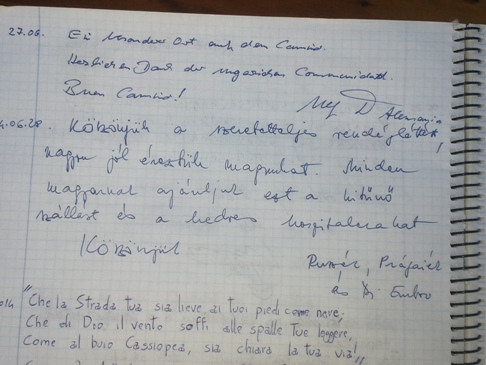 27.06. Ein besonderer Ort auf dem Camino.
Herzlichen Dank der ungarischen Communidatd.
Buen Camino!
Alemania
.06.28. Köszönjük a szeretetteljes vendéglátást,
nagyon jól éreztük magunkat. Minden
magyarnak ajánljuk ezt a kitűnő
szállást és a kedves hospitalerakat
Köszönjük
Prágaiék
és Embro
014 "Che la Strada tua sia lieve, ai tuoi piedi come neve,
Che di Dio il vento soffi alle spalle Tue leggere,
Come al buio Cassiopea, sia chiara la tua via!"